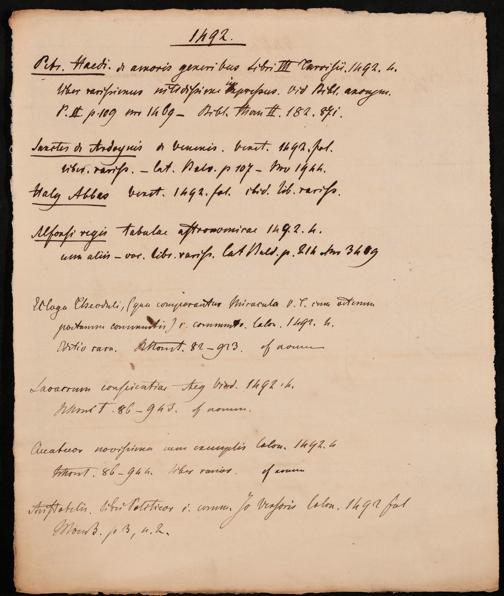 1492.
Petr. Haedi. de amoris generibus Libri III Tarvisii. 1492. 4.
liber rarissimus nitidissime impressus. vid Bibl. anonym.
P. II p 109 nro 1469 – Bibl. Thom II. 182. 871.
Sanctes de Ardoynis de venenis. Venet. 1492. fol.
liber. rariss. – Cat. Balv. p 107 – Nro 1944.
Haly Abbas Venet. 1492. fol. ibid. lib. rariss.
Alfonsi regis tabulae astronomicae 1492. 4.
cum aliis – voc. libr. rariss. Cat p. 214 Nro 3409
Ecloga Theoduli, (qua comparantur Miracula V. T. cum
poetarum commentis) c. comment. Colon. 1492. 4.
Editio rara. 82–923.
Lavacrum conscientiae 1492. 4.
86–943.
Quatuor novissima cum exemplis Colon. 1492. 4
86–944. liber rarior.
Aristotelis. libri Politicor. c. comm. Jo Versoris Colon. 1492 fol
p 3, n. 2.